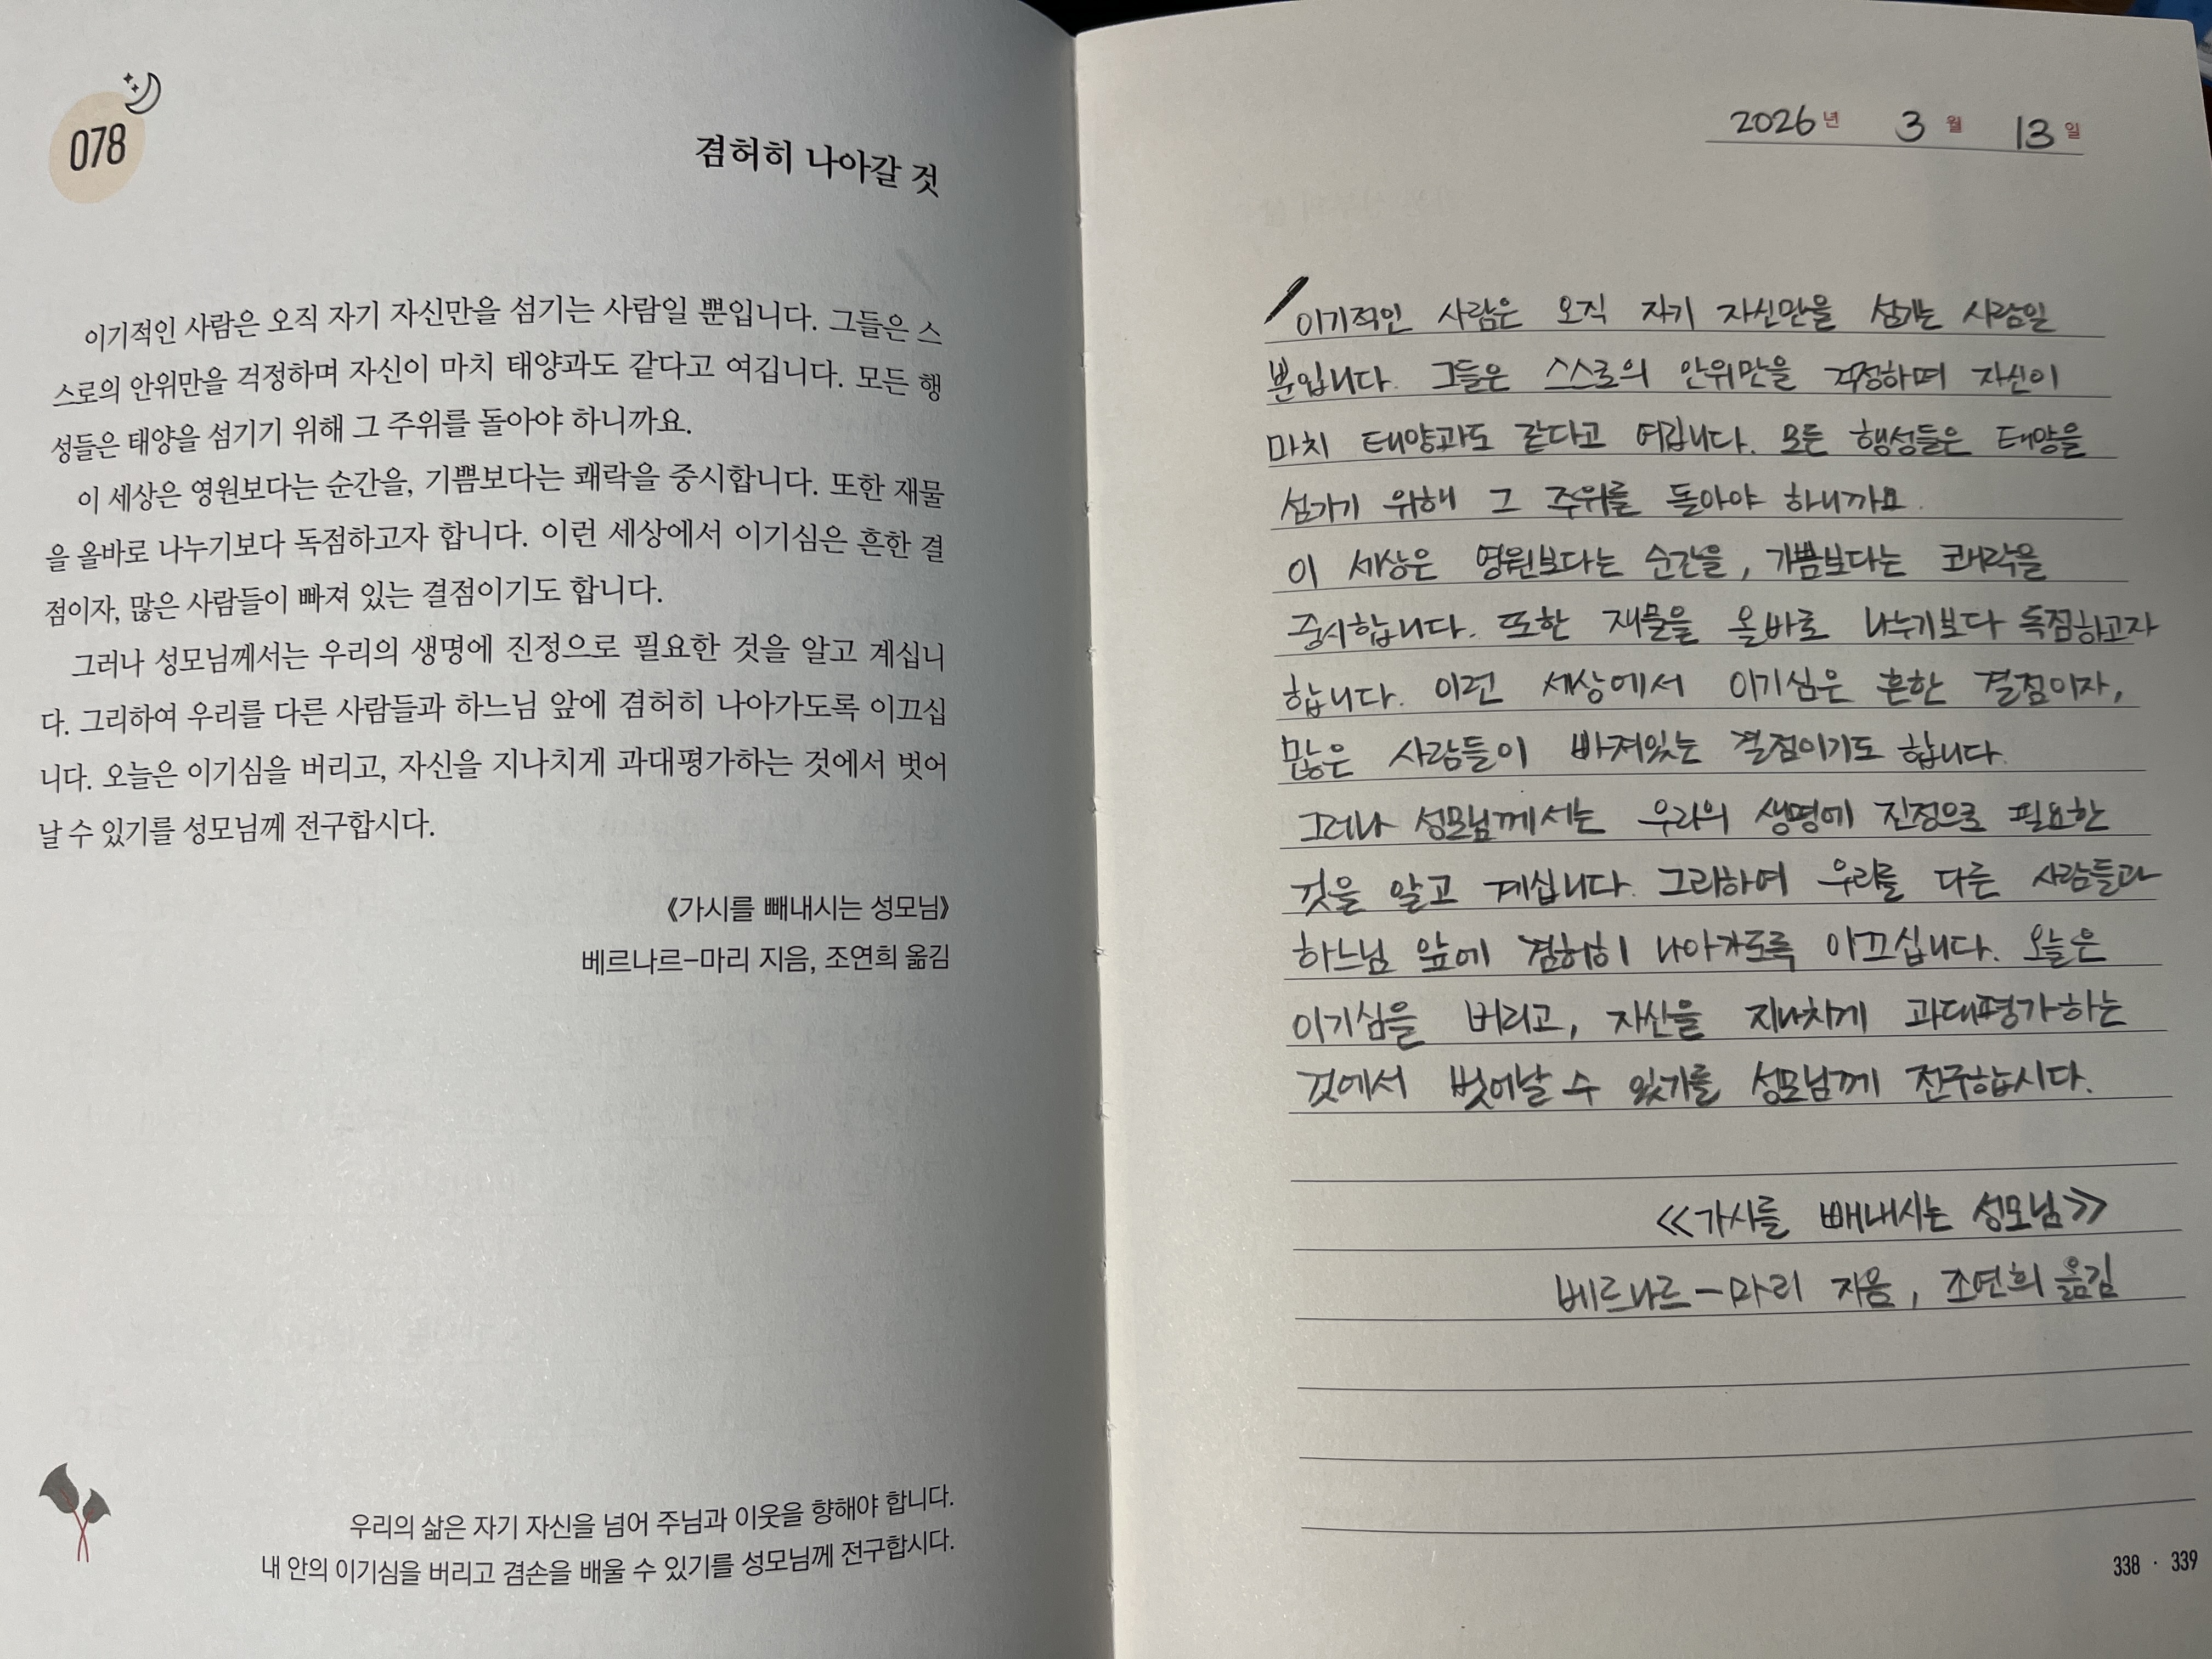 078
겸허히 나아갈 것
이기적인 사람은 오직 자기 자신만을 섬기는 사람일 뿐입니다. 그들은 스
스로의 안위만을 걱정하며 자신이 마치 태양과도 같다고 여깁니다. 모든 행
성들은 태양을 섬기기 위해 그 주위를 돌아야 하니까요.
이 세상은 영원보다는 순간을, 기쁨보다는 쾌락을 중시합니다. 또한 재물
을 올바로 나누기보다 독점하고자 합니다. 이런 세상에서 이기심은 흔한 결
점이자, 많은 사람들이 빠져 있는 결점이기도 합니다.
그러나 성모님께서는 우리의 생명에 진정으로 필요한 것을 알고 계십니
다. 그리하여 우리를 다른 사람들과 하느님 앞에 겸허히 나아가도록 이끄십
니다. 오늘은 이기심을 버리고, 자신을 지나치게 과대평가하는 것에서 벗어
날 수 있기를 성모님께 전구합시다.
《가시를 빼내시는 성모님》
베르나르-마리 지음, 조연희 옮김
우리의 삶은 자기 자신을 넘어 주님과 이웃을 향해야 합니다.
내 안의 이기심을 버리고 겸손을 배울 수 있기를 성모님께 전구합시다.
2026년 3월 13일
이기적인 사람은 오직 자기 자신만을 섬기는 사람일
뿐입니다. 그들은 스스로의 안위만을 걱정하며 자신이
마치 태양과도 같다고 여깁니다. 모든 행성들은 태양을
섬기기 위해 그 주위를 돌아야 하니까요.
이 세상은 영원보다는 순간을, 기쁨보다는 쾌락을
중시합니다. 또한 재물을 올바로 나누기보다 독점하고자
합니다. 이런 세상에서 이기심은 흔한 결점이자,
많은 사람들이 빠져있는 결점이기도 합니다.
그러나 성모님께서는 우리의 생명에 진정으로 필요한
것을 알고 계십니다. 그리하여 우리를 다른 사람들과
하느님 앞에 겸허히 나아가도록 이끄십니다. 오늘은
이기심을 버리고, 자신을 지나치게 과대평가하는
것에서 벗어날 수 있기를 성모님께 전구합시다.
≪가시를 빼내시는 성모님≫
베르나르-마리 지음, 조연희 옮김
338 · 339